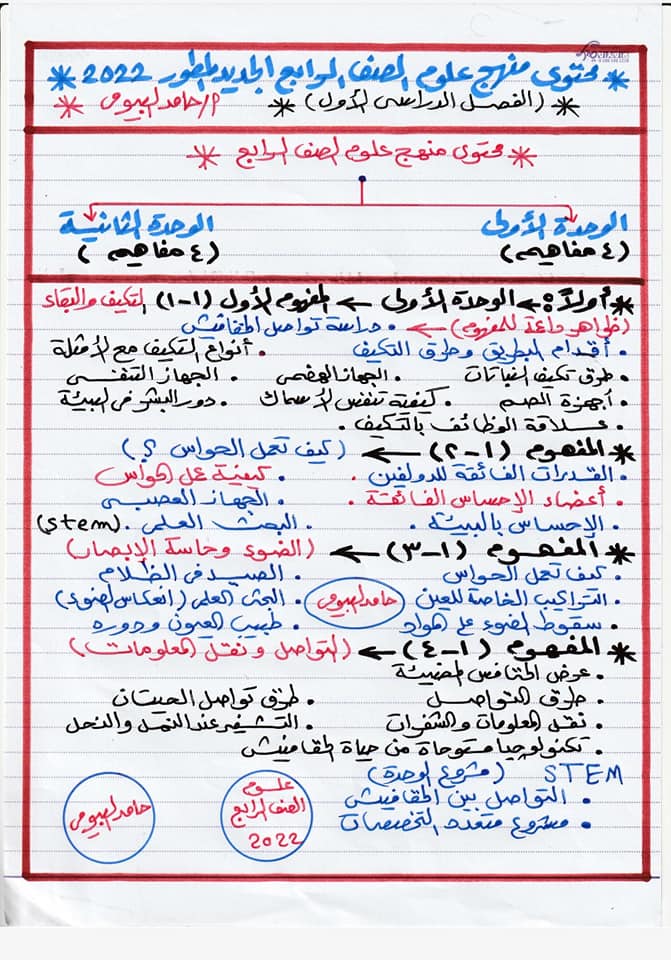 * محتوى منهج علوم الصف الرابع الجديد المطور 2022 *
* (الفصل الدراسى الأول) * م/حامد البيومى *
* محتوى منهج علوم الصف الرابع *
الوحدة الأولى الوحدة الثانية
(٤ مفاهيم) (٤ مفاهيم)
* أولاً: ← الوحدة الأولى ← المفهوم الأول (١-١) التكيف والبقاء
(ظواهر داعمة للمفهوم) ← • دراسة تواصل الخفافيش
• أقدام البطريق وطرق التكيف • أنواع التكيف مع الأمثلة
• طرق تكيف النباتات • الجهاز الهضمى • الجهاز التنفسى
• أجهزة الجسم • كيفية تنفس الأسماك • دور البشر فى البيئة
• علاقة الوظائف بالتكيف
* المفهوم (١-٢) ← (كيف تعمل الحواس ؟)
• القدرات الفائقة للدولفين • كيفية عمل الحواس
• أعضاء الإحساس الفائقة • الجهاز العصبى
• الإحساس بالبيئة • البحث العلمى (stem)
* المفهوم (١-٣) ← (الضوء وحاسة الإبصار)
• كيف تعمل الحواس • الصيد فى الظلام
• التراكيب الخاصة للعين حامد البيومى • البحث العلمى (انعكاس الضوء)
• سقوط الضوء على المواد • طبيب العيون ودوره
* المفهوم (١-٤) ← (التواصل ونقل المعلومات)
• عرض الخنافس المضيئة
• طرق التواصل • طرق تواصل الحيتان
• نقل المعلومات والشفرات • التشفير عند النمل والنحل
• تكنولوجيا مستوحاة من حياة الخفافيش
STEM (مشروع الوحدة)
• التواصل بين الخفافيش
• مشروع متعدد التخصصات
علوم
الصف الرابع
2022
حامد البيومى